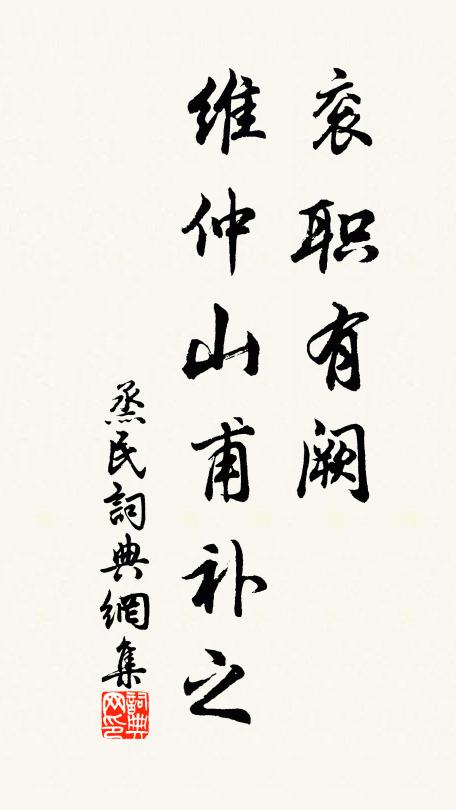 衮职有阙
维仲山甫补之
烝民詞典網集
詞典网印